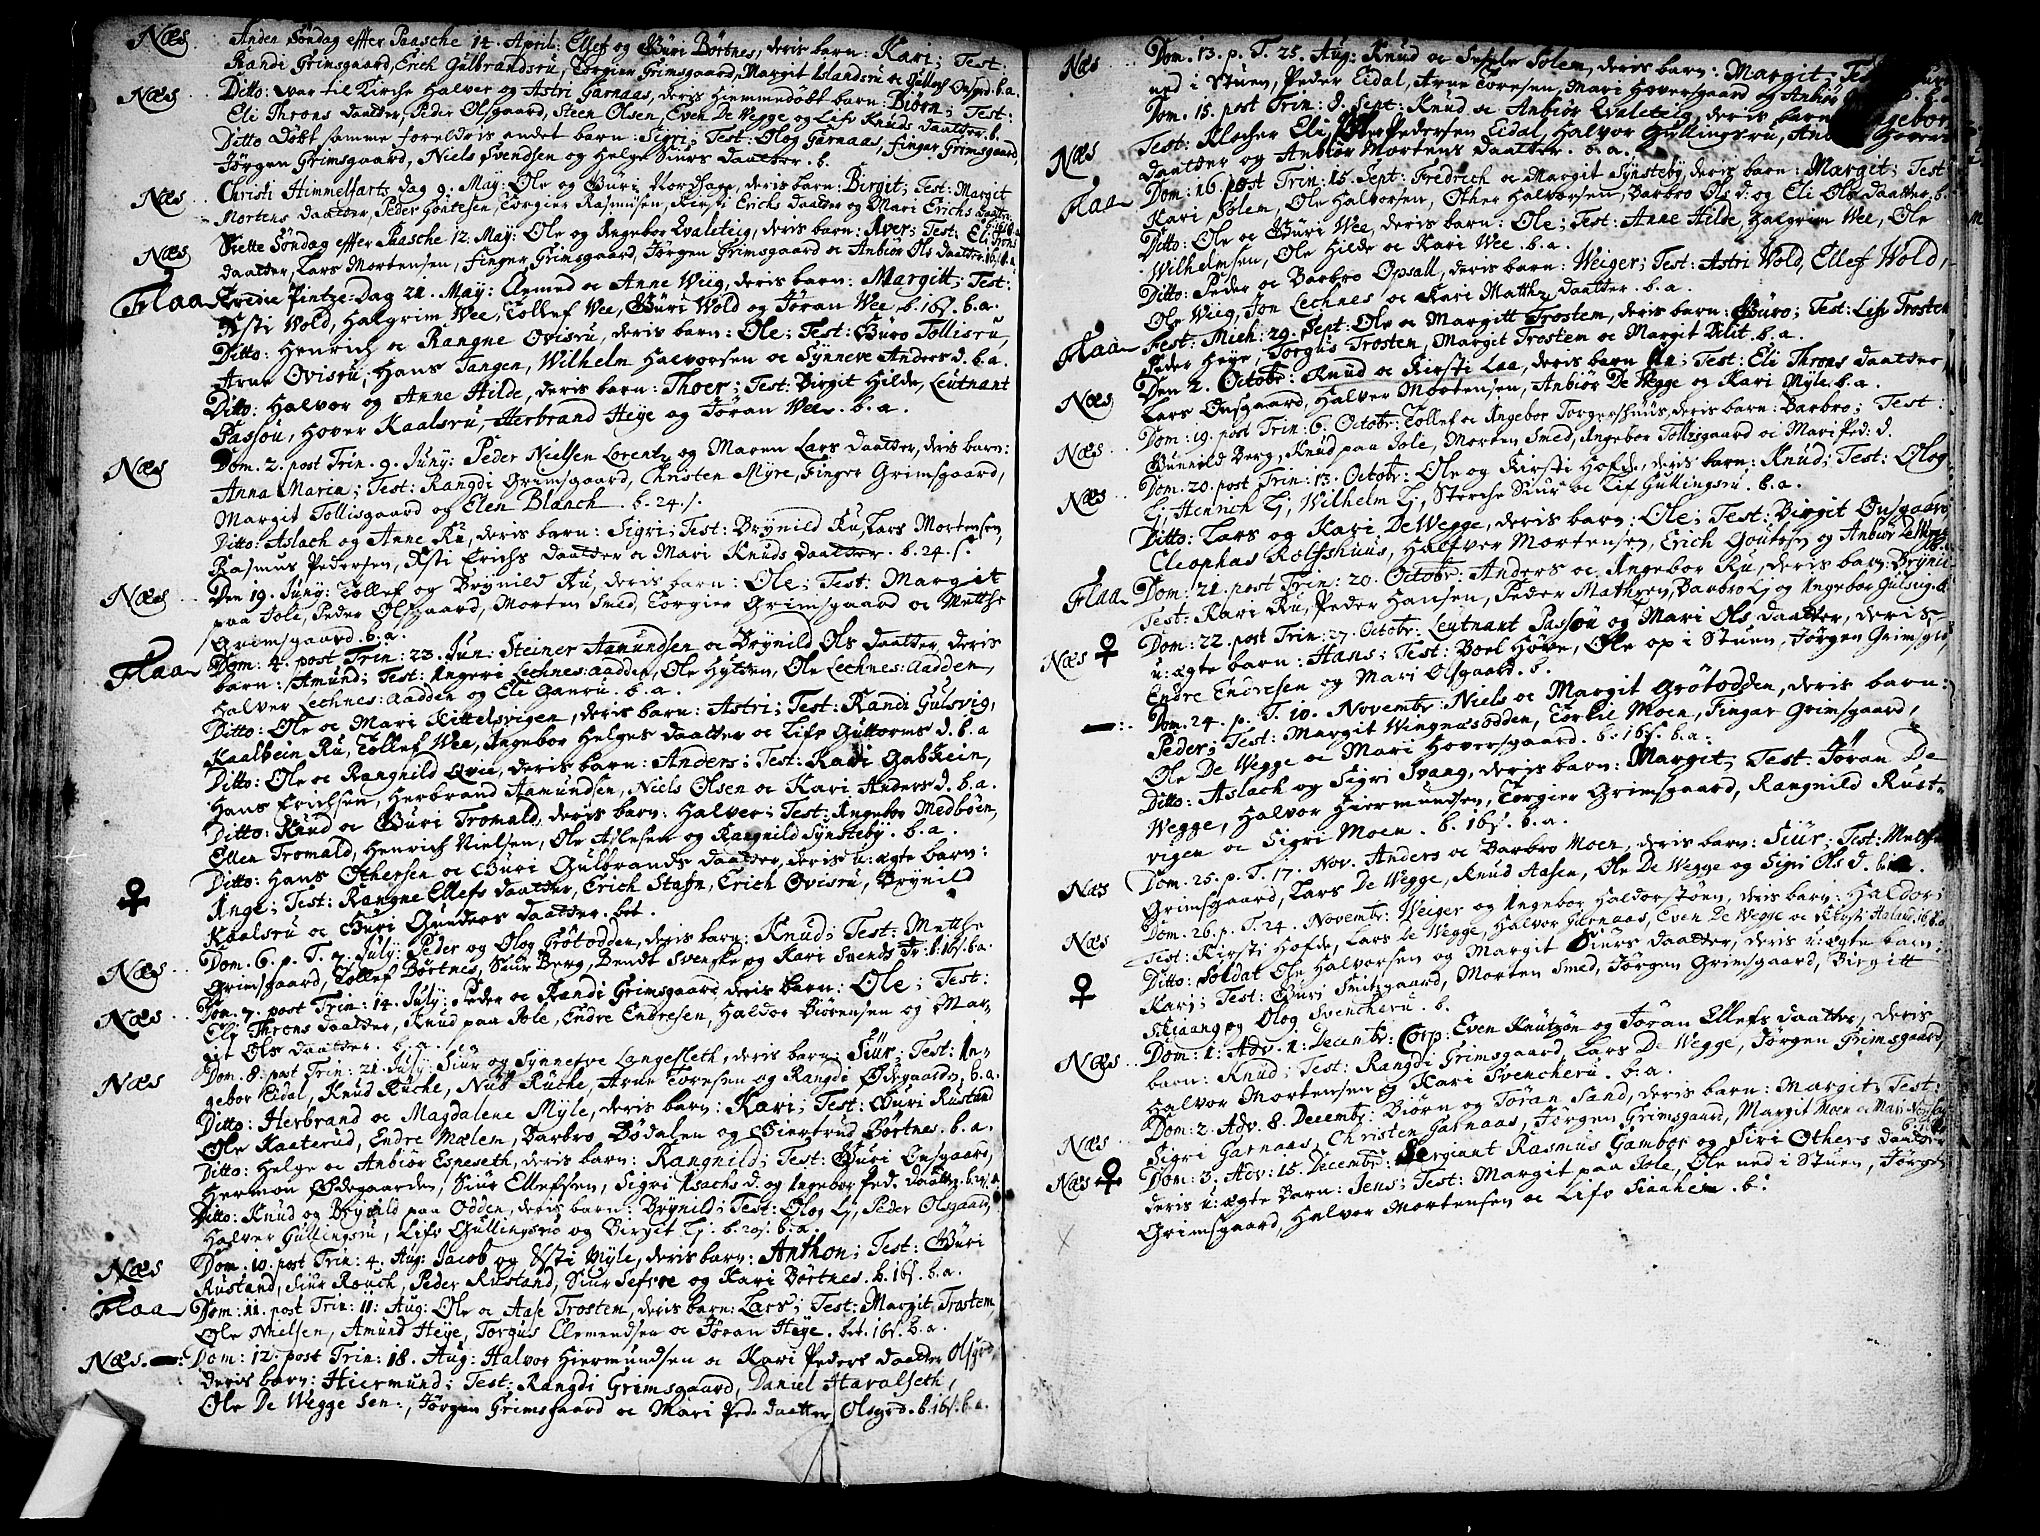 Næs. Anden Søndag effter Paasche 14. April: Ellef og Guri Börtnes, deris barn: Kari; Test:
Randi Grimsgaard, Erich Gulbrandsrü, Torgier Grimsgaard, Margit Islandsrü oc
Næs Ditto: var til Kirche Halver og Astri Garnaas, deris hiemmedöbt barn: Biörn; Test:
Eli Throns daatter, Peder Olsgaard, Steen Olsen, Even De Wegge og Lisv Knuds daatter. b.
Ditto Döbt samme foreldris andet barn: Sigri; Test: Olog Garnaas, Finger Grimsgaard,
Jörgen Grimsgaard, Niels Svendsen og Helge Siurs daatter. b.
Næs Christi Himmelfarts dag 9. May: Ole og Guri Nordhage, deris barn: Birgit; Test: Margit
Mortens daatter, Peder Goutesen, Torgier Rasmusen, Kirsti Erichs daatter og Mari Erichs daatter
Næs Siette Söndag effter Paasche 12. May: Ole og Angebor Qvaleteig, deris barn: Aver; Test: Eli Throns
daatter, Lars Mortensen, Finger Grimsgaard, Jörgen Grimsgaard oc Anbiör Ols daatter.
Flaa Tredie Pintze-Dag 21. May: Clemed oc Anne Wiig, deris barn: Margitt; Test:
Kisti Wold, Halgrim Wee, Tollef Wee, Guri Wold og Jöran Wee. b. 16s. b. a.
Ditto: Henrich oc Rangne Ovisrü, deris barn: Ole; Test: Guro Tollisrü,
Arne Ovisrü, Hans Tangen, Wilhelm Halvorsen oc Synneve Anders d. b. a.
Ditto: Halvor og Anne Hilde, deris barn: Thoer; Test: Birgit Hilde, Leutnant
Passou, Hover Kaalsrü, Herbrand Heye og Jöran Wee. b. a.
Næs Dom. 2. post Trin. 9. Juny: Peder Nielsen Lorentz og Maren Lars daatter, deris barn:
Anna Maria; Test: Rangdi Grimsgaard, Christen Myre, Finger Grimsgaard,
Margit Tollisgaard og Elen Blanch. b. 24. s.
Ditto: Aslach og Anne Ru, deris barn: Sigri; Test: Brynild Ru, Lars Mortensen,
Rasmus Pedersen, Kisti Erichs daatter oc Mari Knuds daatter. b. 24. s.
Næs Den 19. Juny: Tollef og Brynild Ru, deris barn: Ole; Test: Margit
paa Jole, Peder Olsgaard, Morten Smed, Torgier Grimsgaard oc Metthe
Grimsgaard. b. a.
Flaa Dom: 4. post Trin: 23. Jun: Steiner Aamundsen oc Brynild Ols daatter, deris
barn: Amund; Test: Ingeri Lechnes: aadden, Ole Hylden, Ole Lechnes: aadden,
Halver Lechnes: aadden og Eli Ganrü. b. a.
Ditto: Ole oc Mari Kittelsvigen, deris barn: Astri; Test: Randi Gulsvig,
Kaalbein Ru, Tollef Wee, Ingebor Helges daatter oc Lisv Guttorms d. b. a
Ditto: Ole oc Rangnild Qvie, deris barn: Anders; Test: Kari Gabrein,
Hans Erichsen, Herbrand Aamundsen, Niels Olsen oc Kari Anders d. b. a.
Ditto: Knud oc Guri Tromald, deris barn: Halver; Test: Ingebor Medböen,
Ellen Tromald, Henrich Nielsen, Ole Aslesen og Rangnild Synsteby. b. a.
♀ Ditto: Hans Othersen oc Guri Gulbrands daatter, deris u: ægte barn:
Inge; Test: Rangne Ellefs daatter, Erich Stafn, Erich Ovisrü, Brynild
Kaalsrü oc Guri Gunders daatter. bet.
Næs Dom. 6. p. T. 7. July: Peder og Olog Grötodden, deris barn: Knud; Test: Metthe
Grimsgaard, Tollef Börtnes, Siur Berg, Bendt Svenske og Kari Svends Dr. b. 16s. b. a.
Næs Dom. 7. post Trin: 14. July: Peder oc Randi Grimsgaard, deris barn: Ole; Test:
Eli Throns daatter, Knud paa Jole, Endre Endresen, Haldor Biörensen og Mar-
git Ols daatter. b. a.
Næs Dom. 8. post Trin: 21. July: Siur og Synnefve Langesleth, deris barn: Siur; Test: In-
gebor Eidal, Knud Ruche, Nub Ruche, Arne Toresen og Rangdi Ödegaards. b. a.
Ditto: Herbrand oc Magdalene Myle, deris barn: Kari; Test: Guri Rustand
Ole Kaaterud, Endre Mælem, Barbro Bödalen og Giertrud Börtnes. b. a.
Ditto: Helge oc Anbiör Espeseth, deris barn: Rangnild; Test: Guri Onsgaard,
Hermon Ødegaarden, Siur Ellefsen, Sigri Isachs d. og Ingebor Ped. daatter. b. a.
Ditto: Knud og Brynild paa Odden, deris barn: Brynild; Test: Olog Lj, Peder Olsgaard,
Halver Gullingsrü, Lisv Gullingsrü og Birgit Lj. b. 20s. b. a.
Næs Dom. 10. post Trin: 4. Aug: Jacob og Kisti Myle, deris barn: Anthon; Test: Guri
Rustand, Siur Rouch, Peder Rustand, Siur Sefre og Kari Börtnes. b. 16s. b. a.
Flaa Dom: 11. post Trin: 11: Aug: Ole oc Aase Trostem, deris barn: Lars; Test: Margit Trostem,
Ole Nielsen, Amund Heye, Torgus Clemendsen oc Jöran Heye. bet. 16s. b. a.
Næs. Dom: 12. post Trin: 18. Aug: Halvor Hiermundsen oc Kari Peders daatter Olsgrd,
deris barn: Hiermund; Test: Rangdi Grimsgaard, Daniel Haralseth,
Ole De Wegge Sen:, Jörgen Grimsgaard oc Mari Ped. daatter Olsgrd. b. 16s. b. a.
Næs Dom. 13. p. T. 25. Aug: Knud oc Sessele Solem, deris barn: Margit;
ned i Stuen, Peder Eidal, Arne Toresen, Mari Hoversgaard og Anbiör
Næs Dom. 15. post Trin: 8. Sept: Knud oc Anbiör Qvaleteig, deris barn
Test: Klocher Eli, Ole Pedersen Eidal, Halvor Gullingsrü,
daatter og Anbiör Mortens daatter. b. a.
Flaa Dom: 16. post Trin: 15. Sept: Fredrich oc Margit Synsteby, deris barn: Margit; Test:
Kari Solem, Ole Halvorsen, Other Halvorsen, Barbro Ols d: og Eli Ols daatter. b.
Ditto: Ole oc Guri Wee, deris barn: Ole; Test: Anne Hilde, Halgrim Wee, Ole
Wilhelmsen, Ole Hilde oc Kari Wee. b. a.
Ditto: Peder oc Barbro Opsall, deris barn: Weiger; Test: Astri Wold, Ellef Wold,
Ole Weig, Jon Lechnes oc Kari Matthz daatter. b. a.
Flaa Fest: Mich: 29. Sept: Ole oc Margitt Trostem, deris barn: Guro; Test: Lisv Trosten
Peder Heye, Torgus Trosten, Margit Trostem oc Margit Vilit. b. a.
Næs Den 2. Octobr: Knud oc Kirsti Laa, deris barn; Test: Eli Throns daatter,
Lars Onsgaard, Halver Mortensen, Anbiör De Wegge oc Kari Myle. b. a.
Næs Dom: 19. post Trin: 6. Octobr: Tollef oc Ingebor Torgershuus, deris barn: Barbro; Test:
Gunnild Berg, Knud paa Jole, Morten Smed, Ingebor Tollisgaard oc Mari Ped: d.
Næs Dom. 20. post Trin: 13. Octobr: Ole og Kirsti Hofde, deris barn: Knud; Test: Olog
Lj, Henrich Lj, Wilhelm Lj, Sterche Siur oc Lif Gullingsrü. b. a.
Ditto: Lars og Kari De Wegge, deris barn: Ole; Test: Birgit Onsgaard
Cleophas Rolfshuus, Halfver Mortensen, Erich Goutesen og Anbiör De Wegge
Flaa Dom: 21. post Trin: 20. Octobr: Anders oc Ingebor Ru, deris barn: Brynil
Test: Kari Ru, Peder Hansen, Peder Mathisen, Barbro Lj og Ingebor Gulsvig.
Næs ♀ Dom: 22. post Trin: 27. Octobr: Leutnant Passou og Mari Ols daatter, deris
u: ægte barn: Hans; Test: Boel Höve, Ole op i Stuen, Jörgen Grimsgrd,
Endre Endresen og Mari Olsgaard. b.
Dom. 24. p. T. 10. Novembr: Niels oc Margit Grötodden, deris barn:
Peder; Test: Margit Wingnæsodden, Torkil Moen, Fingar Grimsgaard,
Ole De Wegge oc Mari Hoversgaard. b. 16s. b. a.
Ditto: Aslach og Sigri Svang, deris barn: Margit; Test: Jöran De
Wegge, Halvor Hiermundsen, Torgier Grimsgaard, Rangnild Rust-
vigen oc Sigri Moen. b. 16s. b. a.
Næs Dom. 25. p. T. 17. Nov. Anders oc Barbro Moen, deris barn: Siur; Test: Metthe
Grimsgaard, Lars De Wegge, Knud Aasen, Ole De Wegge og Sigri Ols d.
Næs Dom. 26. p. T. 24. Novembr: Weiger og Ingebor Haldorstöen, deris barn: Haldor;
Test: Kirsti Hofde, Lars De Wegge, Halvor Garnaas, Even De Wegge oc Kirsti Aaland. 16s. b. a
♀ Ditto: Soldat Ole Halvorsen og Margit Siurs daatter, deris u: ægte barn:
Kari; Test: Guri Smitsgaard, Morten Smed, Jörgen Grimsgaard, Birgitt
Skiaang og Olog Svencherü. b.
Næs Dom: 1: Adv. 1: Decembr: Corp: Even Knutzön og Jöran Ellefs daatter, deris
barn: Knud; Test: Rangdi Grimsgaard, Lars De Wegge, Jörgen Grimsgaard,
Halvor Mortensen og Kari Svencherü. b. a.
Næs Dom: 2. Adv. 8. Decembr: Biörn og Jöran Sand, deris barn: Margit; Test:
Sigri Garnaas, Christen Garnaas, Jörgen Grimsgaard, Margit Moen oc Mari
Næs ♀ Dom: 3. Adv: 15. Decembr: Sergiant Rasmus Gambör og Siri Others daatter
deris u: ægte barn: Jens; Test: Margit paa Jole, Ole ned i Stuen, Jörgen
Grimsgaard, Halvor Mortensen oc Lisv Siaahem. b.